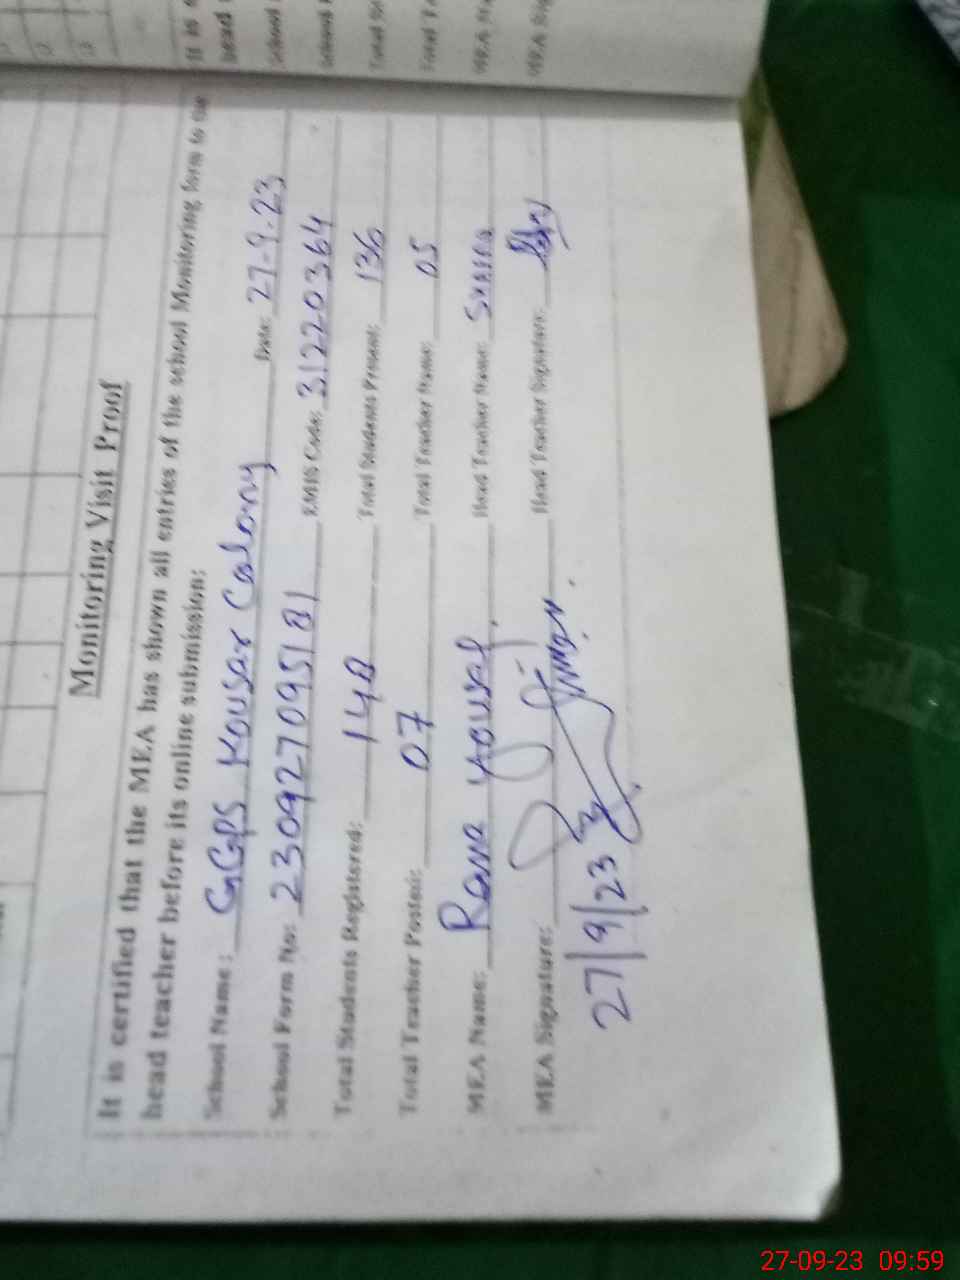 Monitoring Visit Proof
It is certified that the MEA has shown all entries of the school Monitoring form to the
head teacher before its online submission:
School Name: GGPS Kousar Colony Date: 27-9-23
School Form No: EMIS Code: 31220364
Total Students Registered: 148 Total Students Present: 136
Total Teacher Posted: 07 Total Teacher Present: 05
MEA Name: Rana Yousaf Head Teacher Name:
MEA Signature: Head Teacher Signature:
27/9/23
27-09-23 09:59